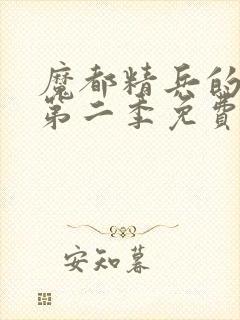 魔都精兵的
第二季免費
安知暮